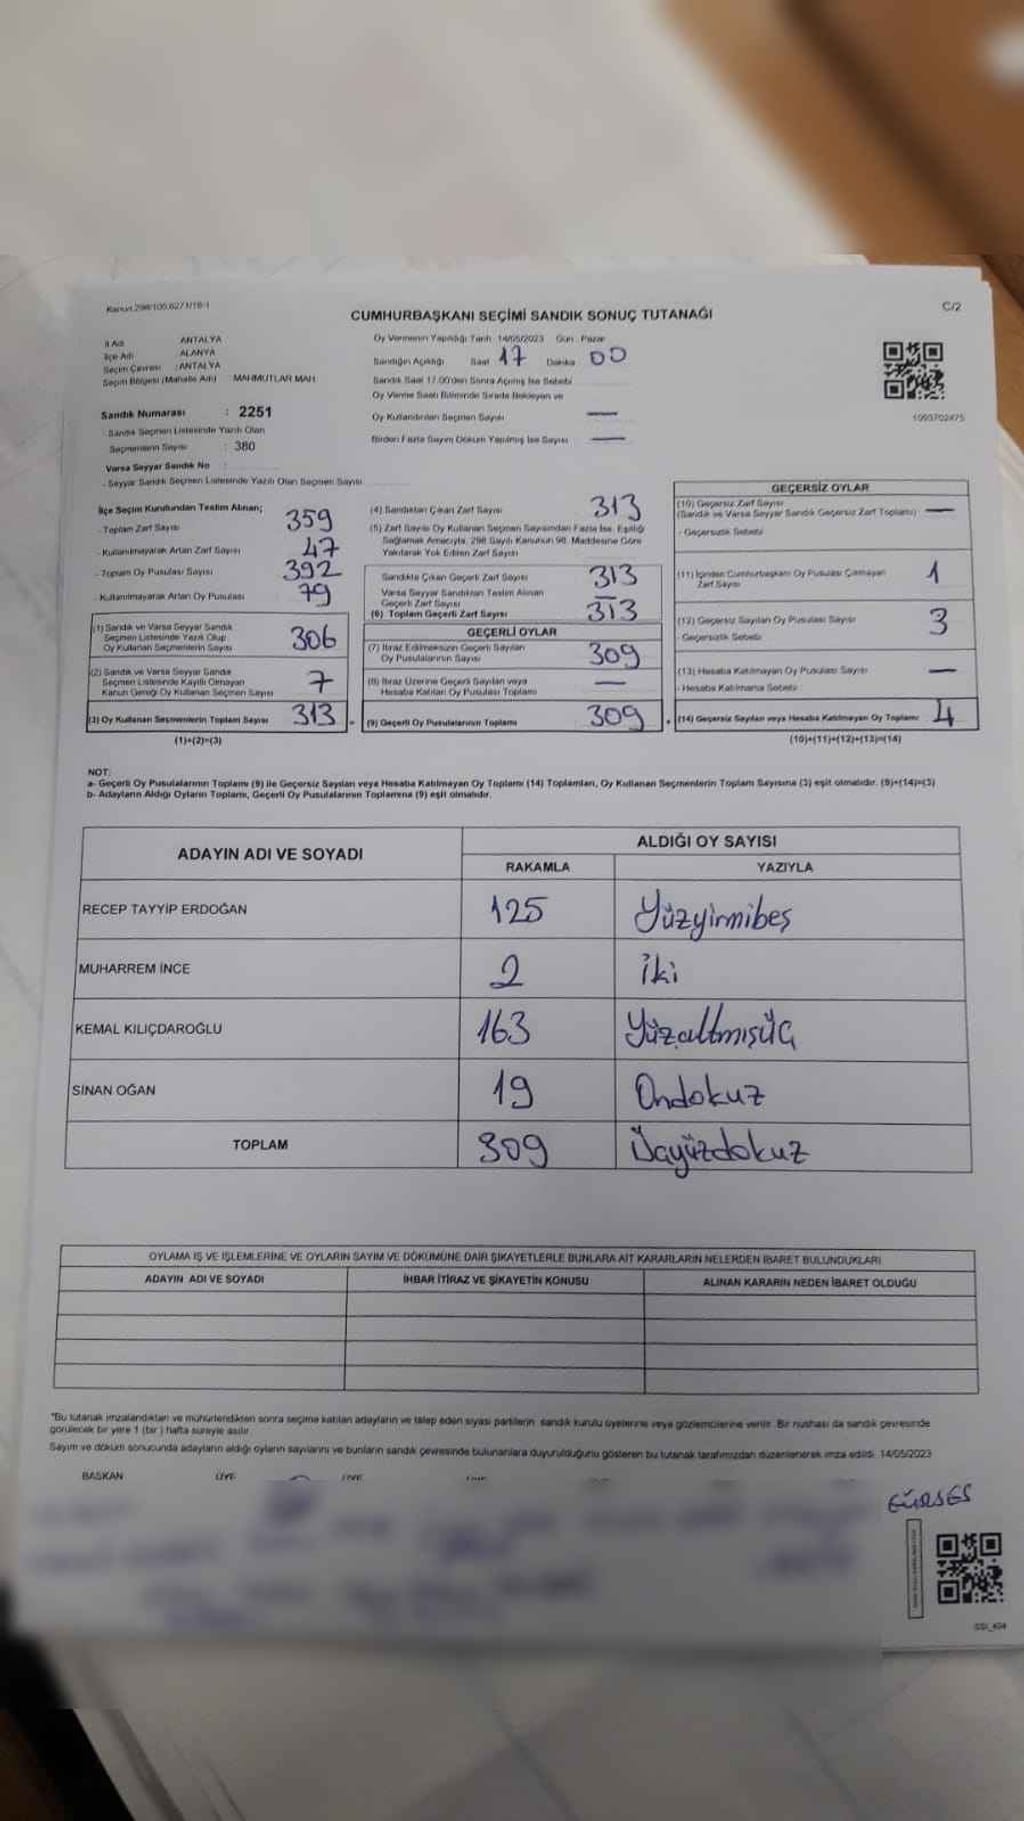 C/2
CUMHURBAŞKANI SEÇİMİ SANDIK SONUÇ TUTANAĞI
İl Adı : ANTALYA
İlçe Adı : ALANYA
Seçim Çevresi : ANTALYA
Seçim Bölgesi (Mahalle Adı) : MAHMUTLAR MAH.
Sandık Numarası : 2251
- Sandık Seçmen Listesinde Yazılı Olan
Seçmenlerin Sayısı : 380
Varsa Seyyar Sandık No :
- Seyyar Sandık Seçmen Listesinde Yazılı Olan Seçmen Sayısı
Oy Vermenin Yapıldığı Tarih 14/05/2023 Gün : Pazar
Sandığın Açıldığı Saat 17 Dakika 00
Sandık Saat 17.00'den Sonra Açılmış İse Sebebi
Oy Verme Saati Bitiminde Sırada Bekleyen ve
Oy Kullandırılan Seçmen Sayısı —
Birden Fazla Sayım Döküm Yapılmış İse Sayısı —
1093702475
İlçe Seçim Kurulundan Teslim Alınan;
- Toplam Zarf Sayısı 359
- Kullanılmayarak Artan Zarf Sayısı 47
- Toplam Oy Pusulası Sayısı 392
- Kullanılmayarak Artan Oy Pusulası 79
(1) Sandık ve Varsa Seyyar Sandık
Seçmen Listesinde Yazılı Olup
Oy Kullanan Seçmenlerin Sayısı 306
(2) Sandık ve Varsa Seyyar Sandık
Seçmen Listesinde Kayıtlı Olmayan
Kanun Gereği Oy Kullanan Seçmen Sayısı 7
(3) Oy Kullanan Seçmenlerin Toplam Sayısı 313
(1)+(2)=(3)
(4) Sandıktan Çıkan Zarf Sayısı 313
(5) Zarf Sayısı Oy Kullanan Seçmen Sayısından Fazla İse, Eşitliği
Sağlamak Amacıyla, 298 Sayılı Kanunun 98. Maddesine Göre
Yakılarak Yok Edilen Zarf Sayısı
Sandıkta Çıkan Geçerli Zarf Sayısı 313
Varsa Seyyar Sandıktan Teslim Alınan
Geçerli Zarf Sayısı —
(6) Toplam Geçerli Zarf Sayısı 313
GEÇERLİ OYLAR
(7) İtiraz Edilmeksizin Geçerli Sayılan
Oy Pusulalarının Sayısı 309
(8) İtiraz Üzerine Geçerli Sayılan veya
Hesaba Katılan Oy Pusulası Toplamı —
(9) Geçerli Oy Pusulalarının Toplamı 309
GEÇERSİZ OYLAR
(10) Geçersiz Zarf Sayısı
(Sandık ve Varsa Seyyar Sandık Geçersiz Zarf Toplamı) —
- Geçersizlik Sebebi
(11) İçinden Cumhurbaşkanı Oy Pusulası Çıkmayan
Zarf Sayısı 1
(12) Geçersiz Sayılan Oy Pusulası Sayısı 3
- Geçersizlik Sebebi
(13) Hesaba Katılmayan Oy Pusulası Sayısı —
- Hesaba Katılmama Sebebi
(14) Geçersiz Sayılan veya Hesaba Katılmayan Oy Toplamı 4
(10)+(11)+(12)+(13)=(14)
NOT:
a- Geçerli Oy Pusulalarının Toplamı (9) ile Geçersiz Sayılan veya Hesaba Katılmayan Oy Toplamı (14) Toplamları, Oy Kullanan Seçmenlerin Toplam Sayısına (3) eşit olmalıdır. (9)+(14)=(3)
b- Adayların Aldığı Oyların Toplamı, Geçerli Oy Pusulalarının Toplamına (9) eşit olmalıdır.
ADAYIN ADI VE SOYADI
ALDIĞI OY SAYISI
RAKAMLA YAZIYLA
RECEP TAYYİP ERDOĞAN 125 Yüzyirmibeş
MUHARREM İNCE 2 İki
KEMAL KILIÇDAROĞLU 163 Yüzaltmışüç
SİNAN OĞAN 19 Ondokuz
TOPLAM 309 Üçyüzdokuz
OYLAMA İŞ VE İŞLEMLERİNE VE OYLARIN SAYIM VE DÖKÜMÜNE DAİR ŞİKAYETLERLE BUNLARA AİT KARARLARIN NELERDEN İBARET BULUNDUKLARI
ADAYIN ADI VE SOYADI İHBAR İTİRAZ VE ŞİKAYETİN KONUSU ALINAN KARARIN NEDEN İBARET OLDUĞU
*Bu tutanak imzalandıktan ve mühürlendikten sonra seçime katılan adayların ve talep eden siyasi partilerin sandık kurulu üyelerine veya gözlemcilerine verilir. Bir nüshası da sandık çevresinde
görülecek bir yere 1 (bir ) hafta süreyle asılır.
Sayım ve döküm sonucunda adayların aldığı oyların sayılarını ve bunların sandık çevresinde bulunanlara duyurulduğunu gösteren bu tutanak tarafımızdan düzenlenerek imza edildi. 14/05/2023
BAŞKAN ÜYE ÜYE
GÜRSES